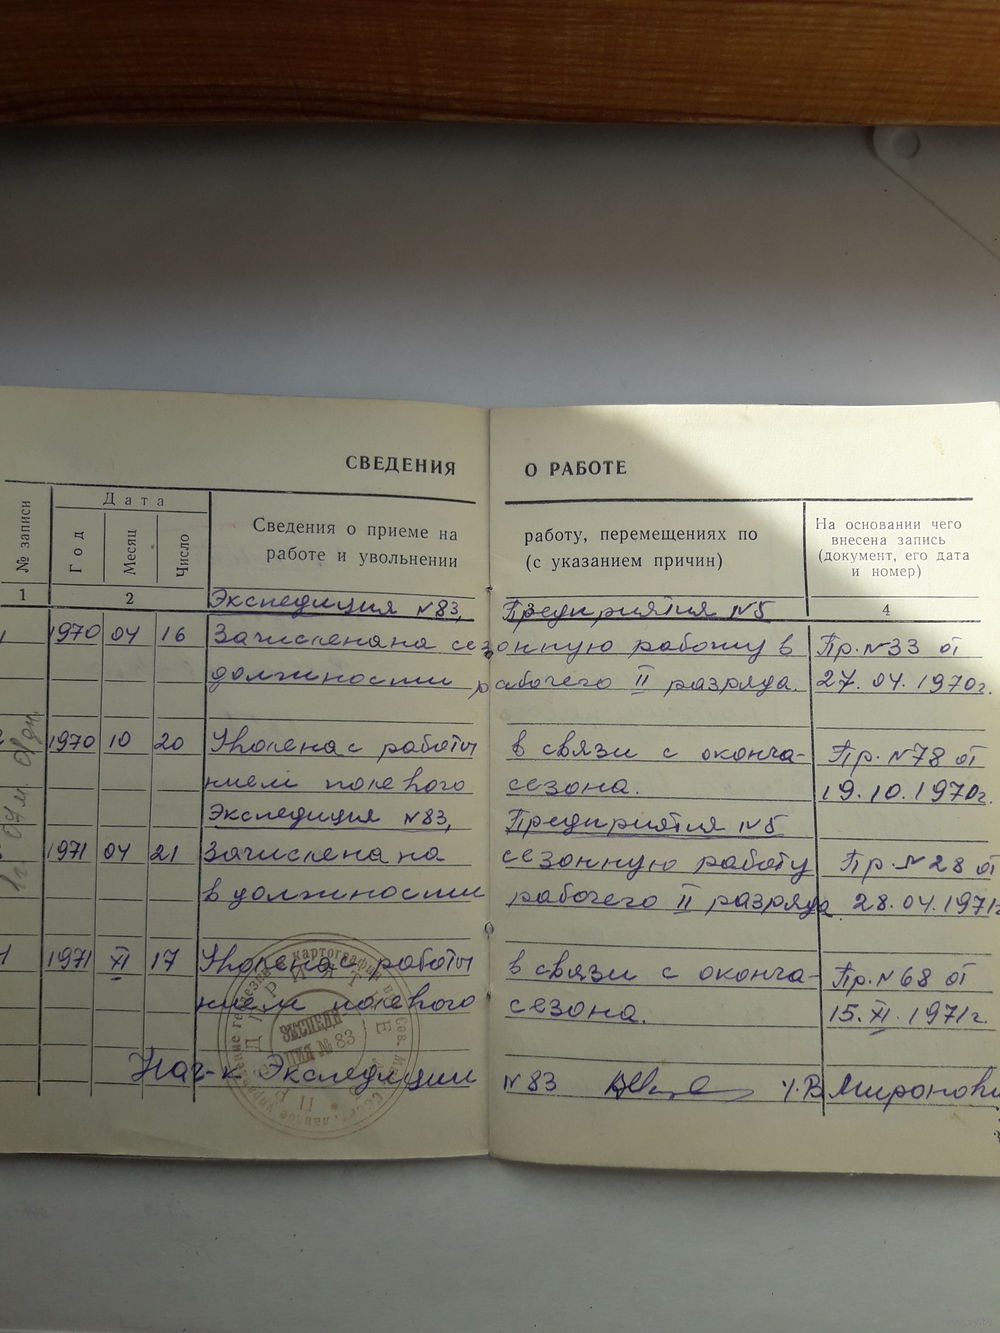 СВЕДЕНИЯ О РАБОТЕ
№ записи
Дата
Год
Месяц
Число
Сведения о приеме на
работе и увольнении
работу, перемещениях по
(с указанием причин)
На основании чего
внесена запись
(документ, его дата
и номер)
1 2 3 4
Экспедиция №83, Предприятия №5
1970 04 16 Зачислена на сезонную работу в Пр. №33 от
должности рабочего II разряда. 27.04.1970г.
1970 10 20 Уволена с работы в связи с оконча- Пр. №78 от
нием полевого сезона. 19.10.1970г.
Экспедиция №83, Предприятия №5
1971 04 21 Зачислена на сезонную работу Пр. №28 от
в должности рабочего II разряда 28.04.1971г
1971 XI 17 Уволена с работы в связи с оконча- Пр. №68 от
нием полевого сезона. 15.XI.1971г.
Нач-к Экспедиции №83
1г. 07м 01дн.
ЭКСПЕДИ
ЦИЯ № 83